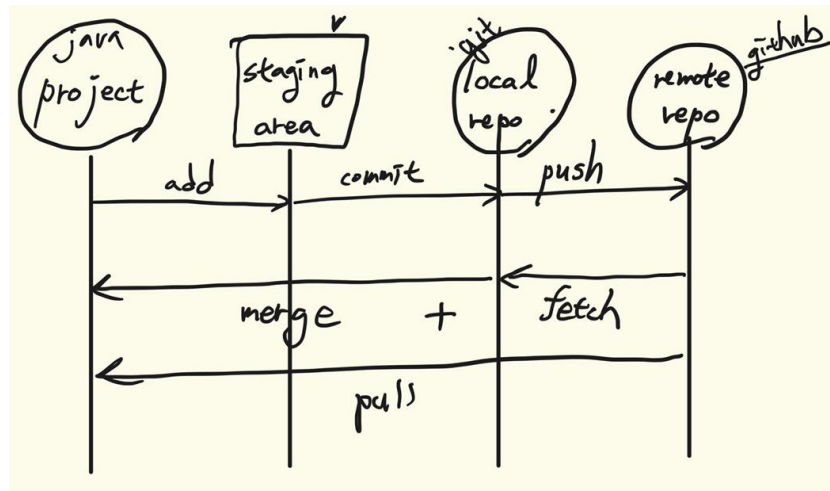 java
project
staging
area
.git
local
repo
remote
repo
github
add
commit
push
merge + fetch
pull